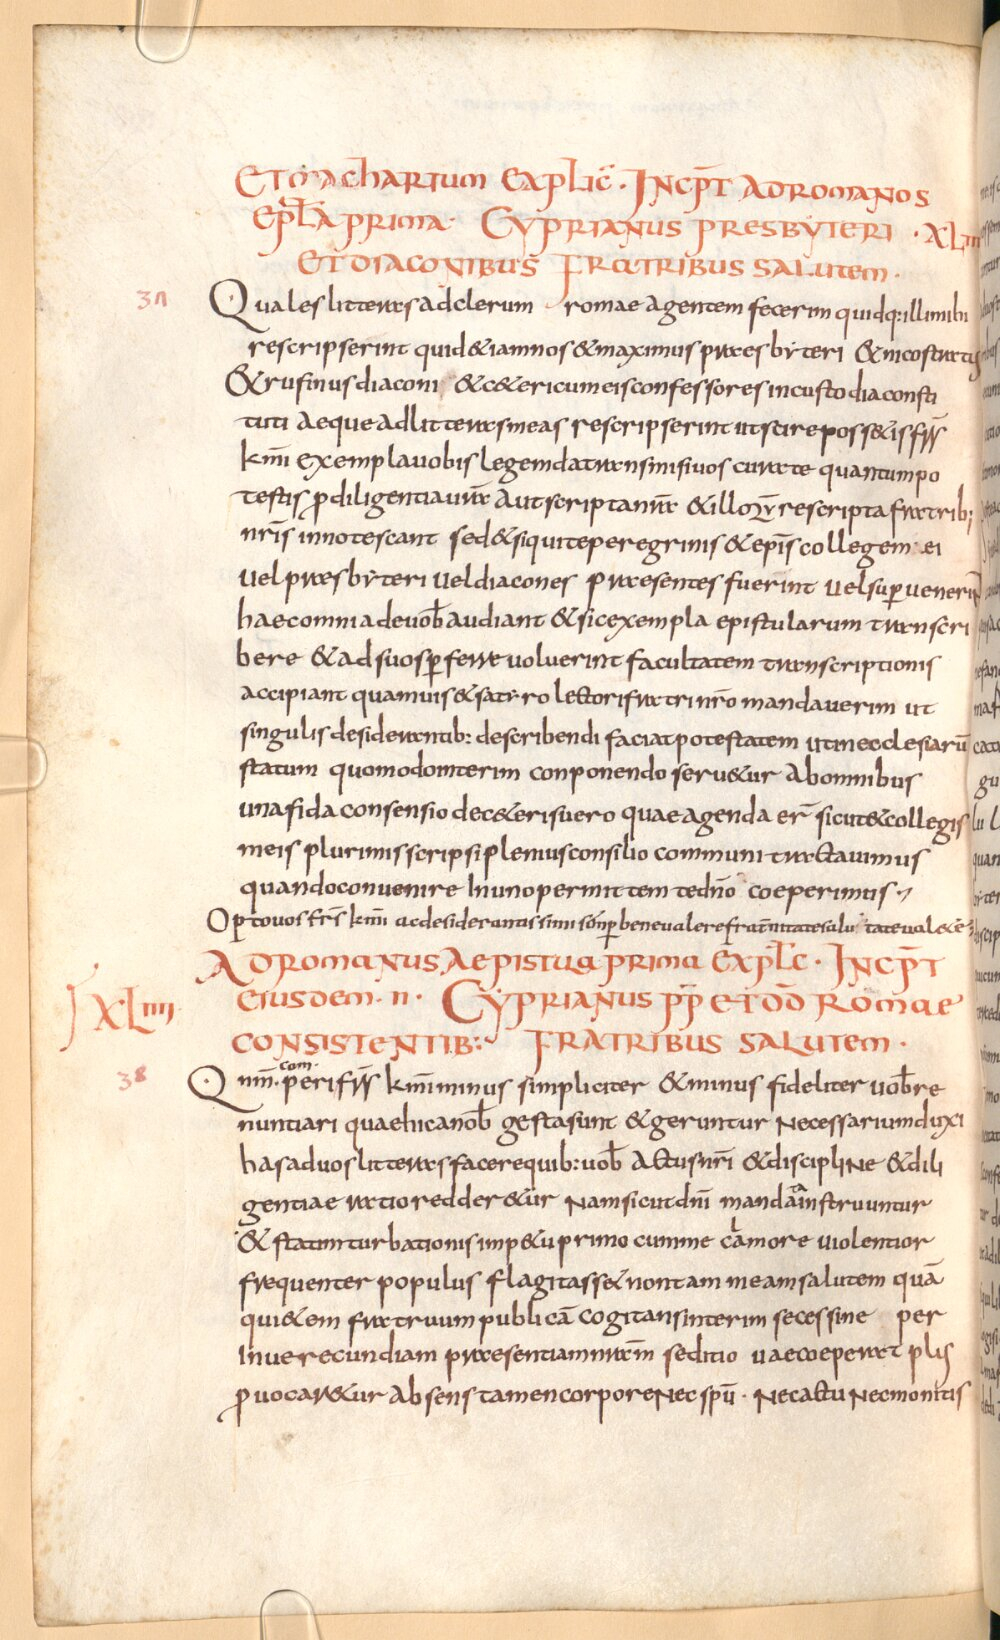 ET MACHARIUM EXPLIC̄. INCP̄T AD ROMANOS
EPL̄A PRIMA. CYPRIANUS PRESBYTERI . XLIII
ET DIACONIBUS FRATRIBUS SALUTEM.
37 Quales litteras ad clerum romae agentem fecerim quidq: illi mihi
rescripserint quid & iam nos & maximus praesbyteri & nicostratus
& rufinus diaconi & c&eri cum eis confessores in custodia consti
tuti aeque ad litteras meas rescripserint ut scire poss&is frr̄s
km̄i exempla uobis legenda transmisi uos curate quantum po
testis p diligentia uar̄ aut scripta nar̄ & illoꝝ rescripta fratrib;
nr̄is innotescant sed & si qui te peregrinis & ep̄is collegem ei
uel praesbyteri uel diacones praesentes fuerint uel superuenerint
haec omnia de uob̄ audiant & si exempla epistularum transcri
bere & ad suos p ferre uoluerint facultatem transcriptionis
accipiant quamuis & satyro lectori fratri nr̄o mandauerim ut
singulis desiderantib: describendi faciat potestatem ut in ecclesiarū
statum quomodo interim conponendo seru&ur ab omnibus
una fida consensio dec&eris uero quae agenda er̄ sicut & collegis
meis plurimis scripsi plenius consilio communi tractauimus
quando conuenire in uno permittem te dn̄o coeperimus.
Opto uos frs̄ km̄i ac desiderantissimi semper bene ualere fraternitate salutate ual&e
AD ROMANUS AEPISTULA PRIMA EXPLC̄. INCP̄T
XLIIII EIUSDEM. II. CYPRIANUS PP̄ ET DD̄ ROMAE
CONSISTENTIB: FRATRIBUS SALUTEM.
38 Qnm̄ comperi frr̄s km̄i minus simpliciter & minus fideliter uob̄ re
nuntiari quae hic a nob̄ gesta sunt & geruntur necessarium duxi
has ad uos litteras facere quib: uob̄ actus nr̄i & discipline & dili
gentiae ratio redder&ur nam sicut dn̄i mandata instruuntur
& statim turbationis imp&u primo cum me clamore uiolentior
frequenter populus flagitass& non tam meam salutem quā
qui&em fratruum publicā cogitans interim secessi ne per
inuerecundiam praesentiam nram̄ seditio uae coeperat plus
p uocar&ur absens tamen corpore nec spū. nec actu nec monitis